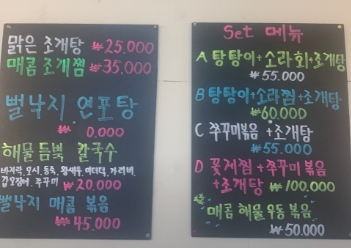 맑은 조개탕 ₩25.000
매콤 조개찜 ₩35.000
뻘낙지 연포탕
₩ 0.000
해물 듬뿍 칼국수
바지락, 모시, 동죽, 황새우, 미더덕, 가리비,
갑오징어, 쭈꾸미 ₩20.000
뻘낙지 매콤 볶음
₩45.000
Set 메뉴
A 탕탕이+소라회+조개탕
₩55.000
B 탕탕이+소라찜+조개탕
₩60.000
C 쭈꾸미볶음+조개탕
₩55.000
D 꽃게찜+쭈꾸미 볶음
+조개탕 ₩100.000
매콤 해물 우동 볶음
₩50.000